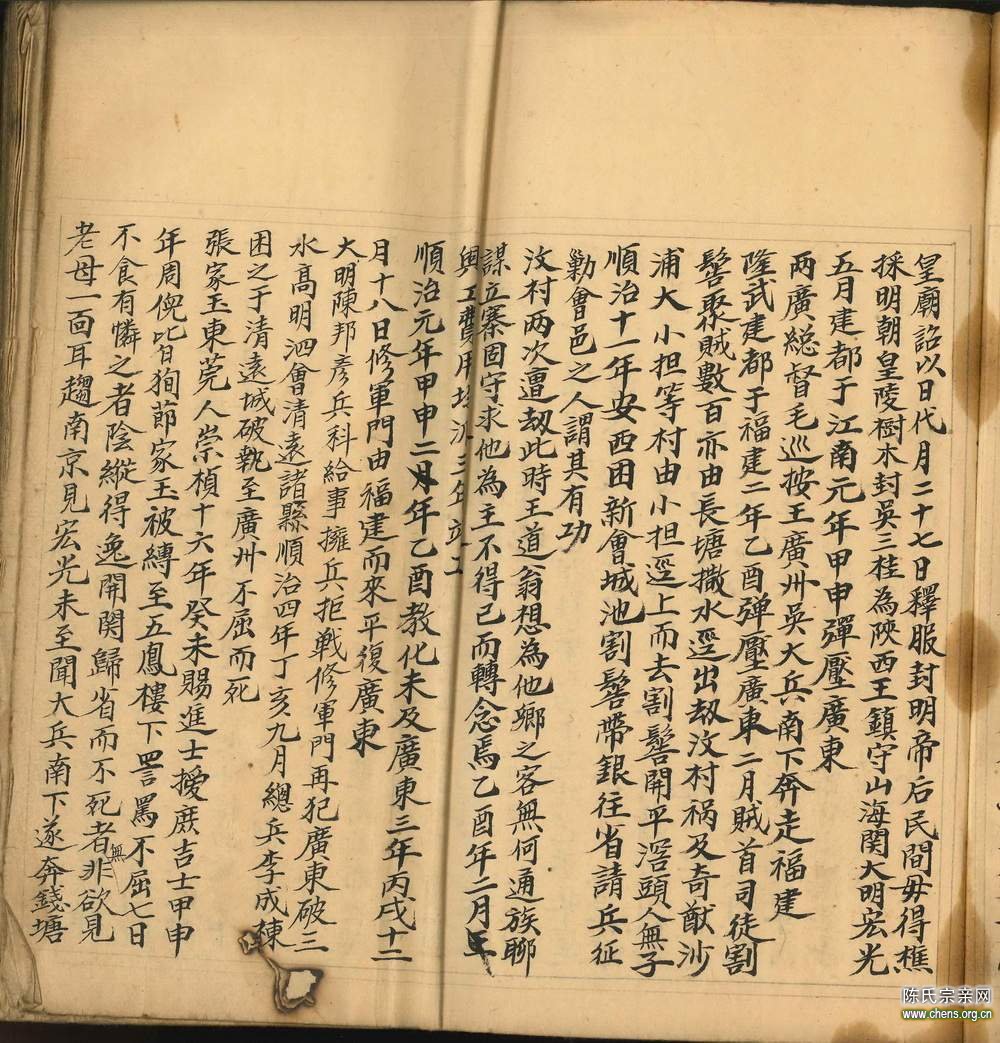 皇廟詔以日代月二十七日釋服封明帝后民間毋得樵
採明朝皇陵樹木封吳三桂為陝西王鎮守山海関大明宏光
五月建都于江南元年甲申彈壓廣東
两廣総督毛巡按王廣州吳大兵南下奔走福建
隆武建都于福建二年乙酉弹壓廣東二月賊首司徒割
髻聚賊數百亦由長塘撒水逕出刼汶村祸及奇猷沙
浦大小担等村由小担逕上而去割髻開平滘頭人無子
順治十一年安西困新會城池割髻帶銀往省請兵征
勦會邑之人謂其有功
汶村两次遭刼此時王道翁想為他鄉之客無何通族聊
謀立寨固守求他為主不得已而轉念焉乙酉年二月
興工費用 三年 工
順治元年甲申二年乙酉教化未及廣東三年丙戌十二
月十八日修軍門由福建而來平復廣東
大明陳邦彥兵科給事擁兵拒戦修軍門再犯廣東破三
水高明泗會清遠諸縣順治四年丁亥九月總兵李成棟
困之于清遠城破執至廣州不屈而死
張家玉東莞人崇楨十六年癸未賜進士擾庶吉士甲申
年周倪比皆狥莭家玉被縛至五鳳樓下詈罵不屈七日
不食有憐之者陰縱得逸開関歸省而不死者無非欲見
老母一面耳趨南京見宏光未至聞大兵南下遂奔錢塘
陈氏宗亲网
www.chens.org.cn